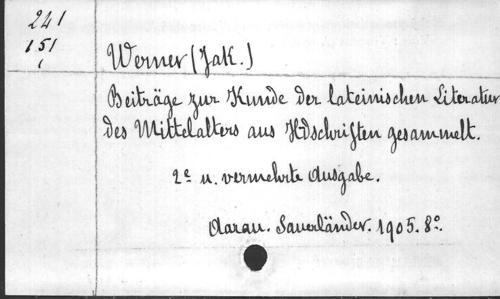 241
151
(
Werner (Jak.)
Beiträge zur Kunde der lateinischen Literatur
des Mittelalters aus Hdschriften gesammelt.
2e u. vermehrte Ausgabe.
Aarau. Sauerländer. 1905. 8o.